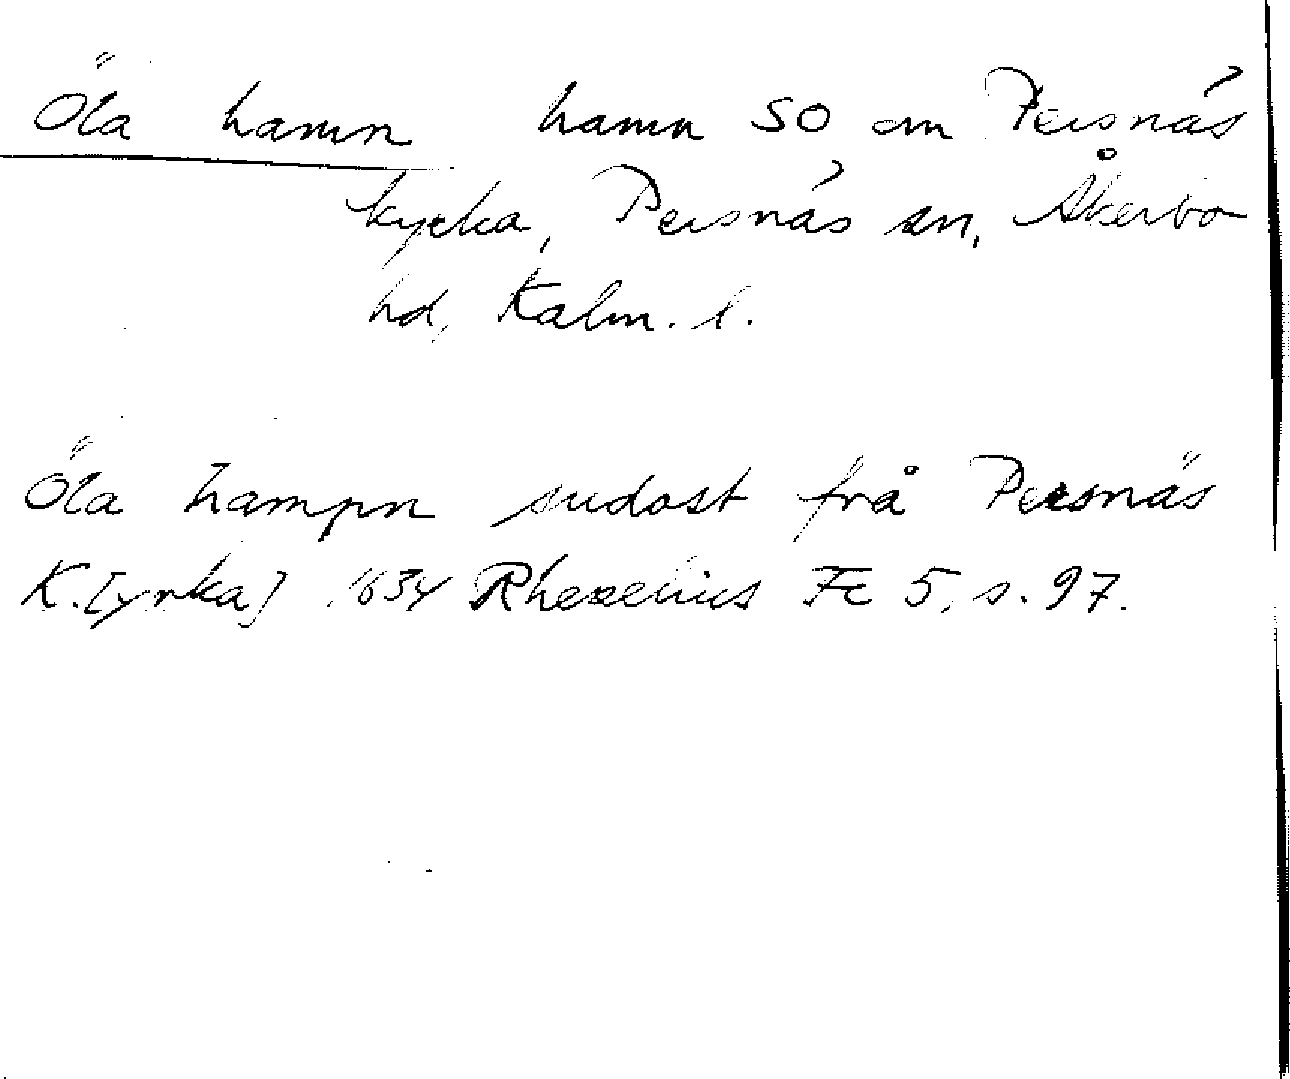 Öla hamn hamn SO om Persnäs
kyrka, Persnäs sn, Åkerbo
hd, Kalm. l.
Öla hampn sudost frå Persnäs
K.[yrka] 1634 Rhezelius Fc 5, s. 97.